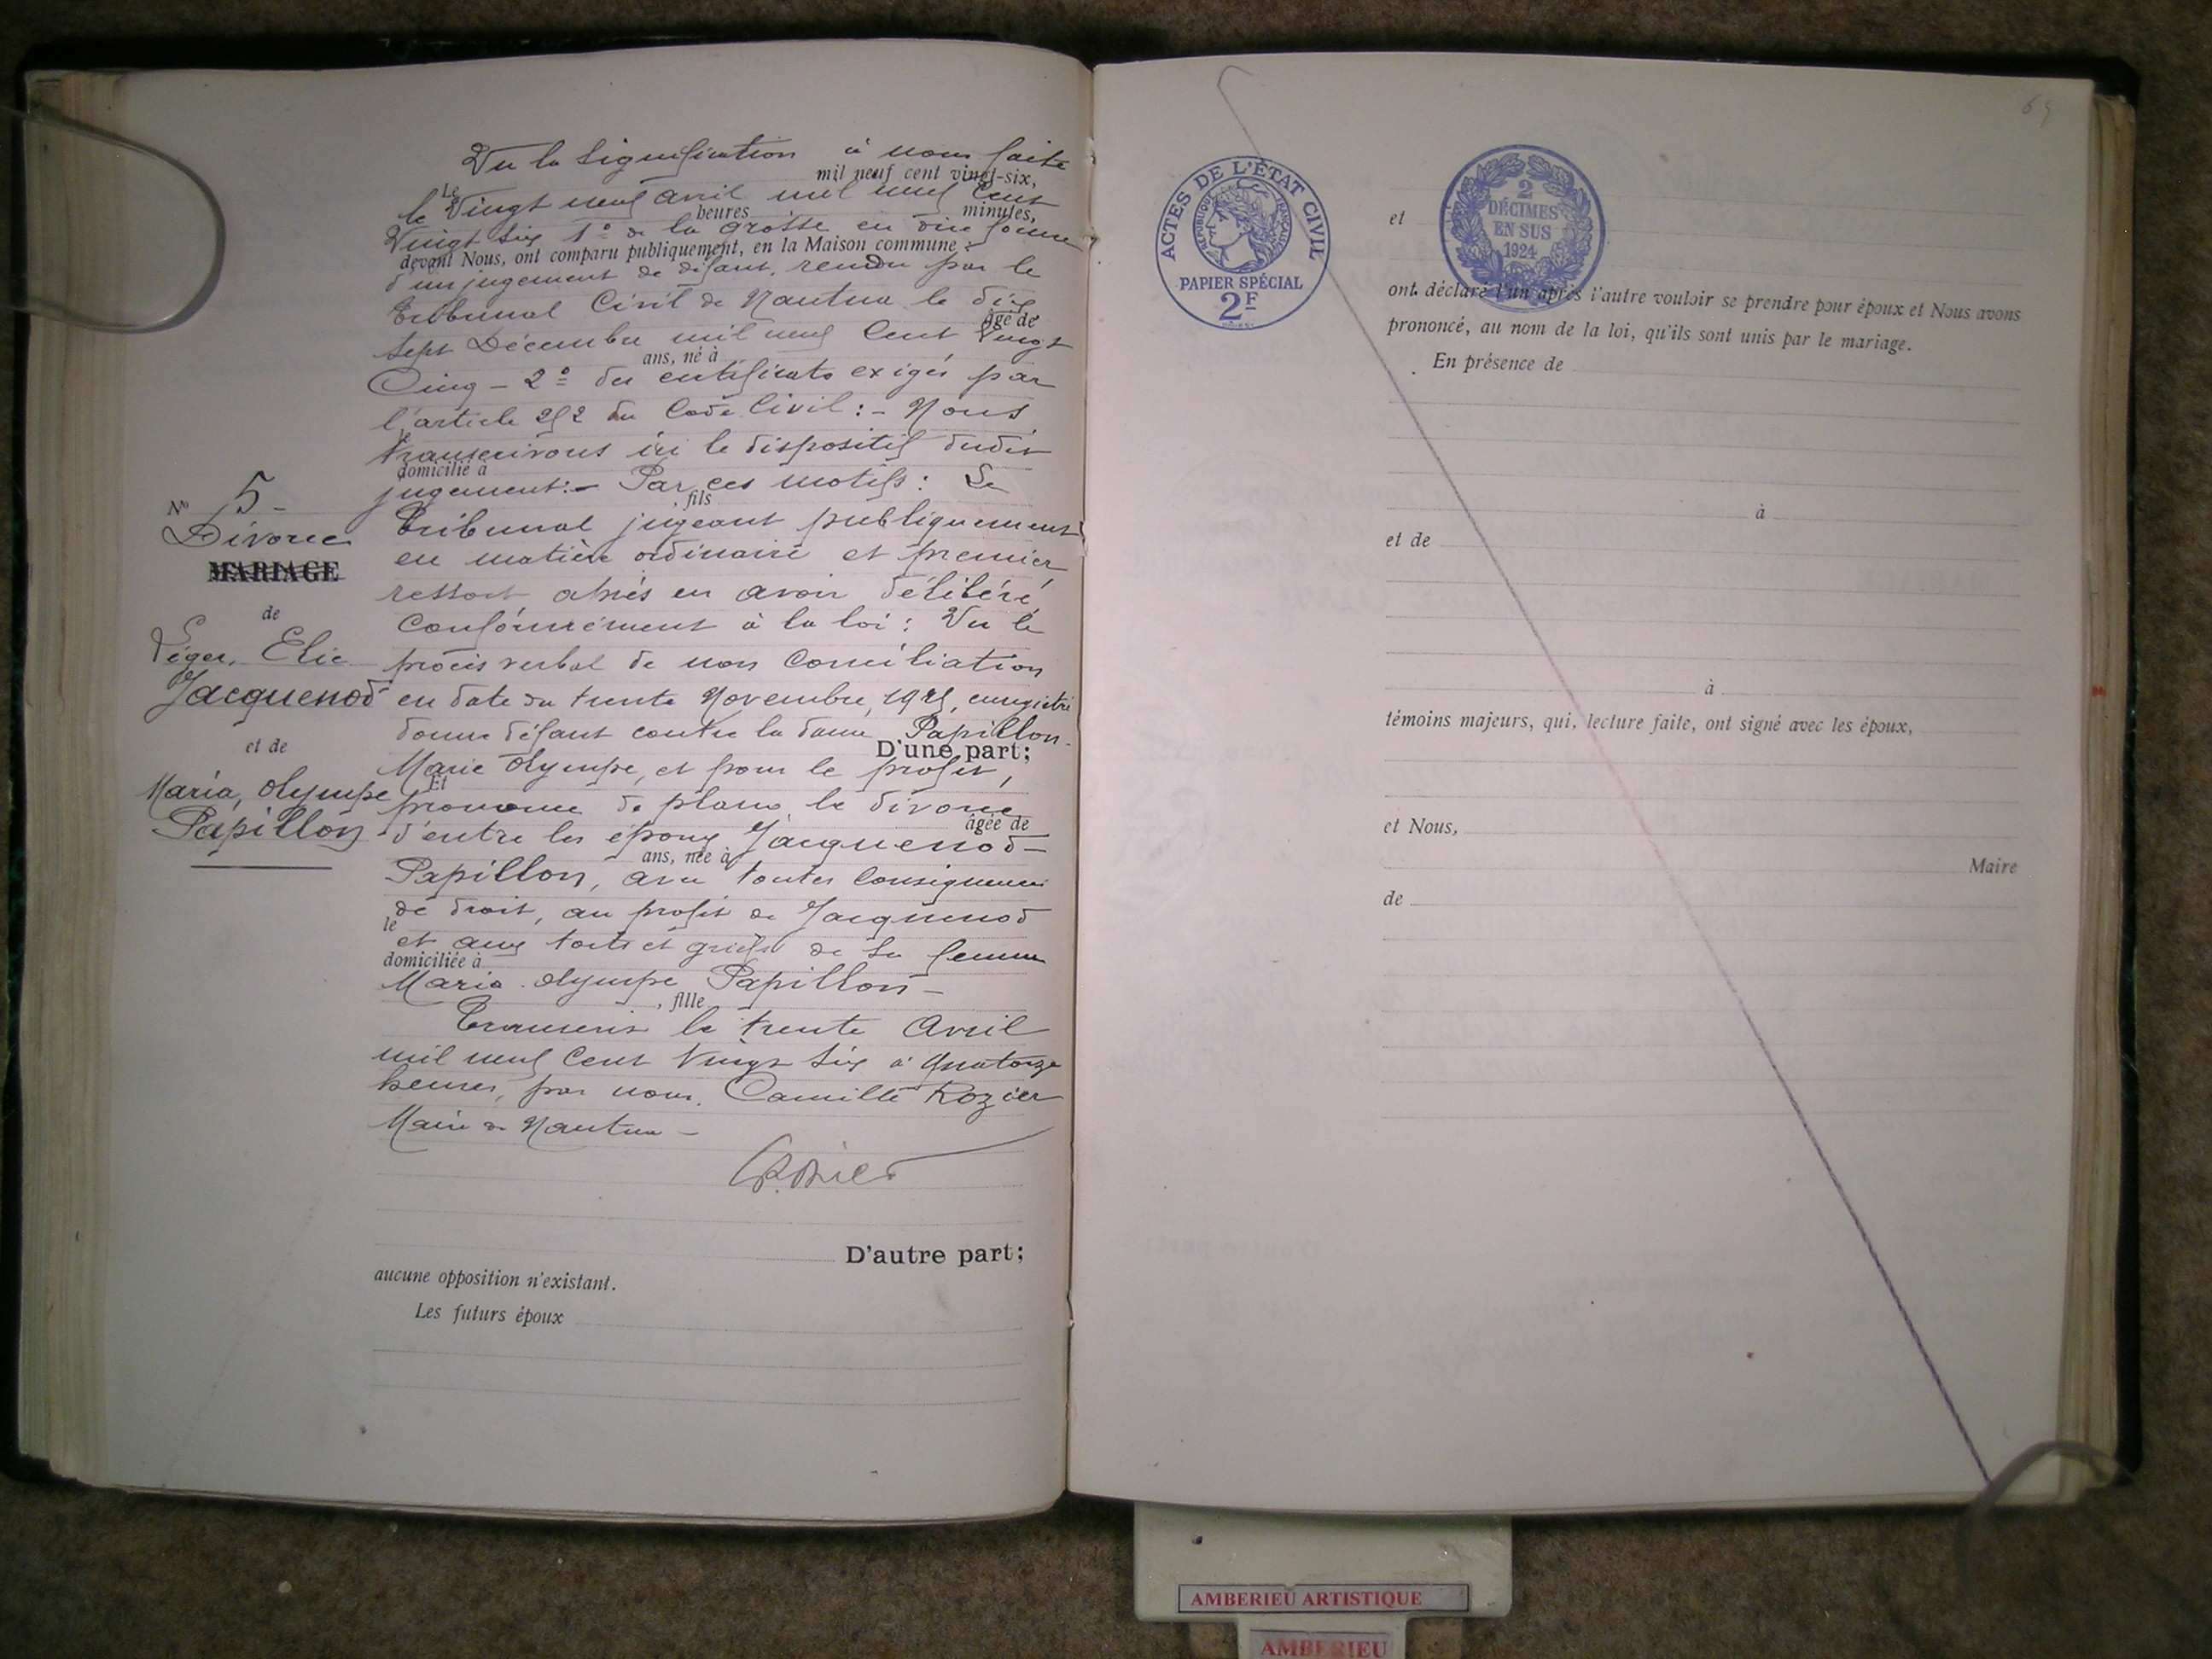 Vu la Signification à nous faite
mil neuf cent vingt-six,
Le
le Vingt neuf avril mil neuf Cent
heures minutes,
Vingt Six 1° de la Grosse en due forme
devant Nous, ont comparu publiquement, en la Maison commune :
d'un jugement de défaut, rendu par le
Tribunal Civil de Nantua le dix
âgé de
Sept Décembre mil neuf Cent Vingt
ans, né à
Cinq - 2° des certificats exigés par
l'article 252 du Code Civil : - Nous
le
transcrivons ici le dispositif dudit
domicilié à
jugement :- Par ces motifs : Le
, fils
Tribunal jugeant publiquement
en matière ordinaire et premier
ressort après en avoir délibéré
Conformément à la loi : Vu le
procès verbal de non Conciliation
en date du trente Novembre, 1925, enregistré
donne défaut contre la dame Papillon
D'une part;
Marie Olympe, et pour le profit,
Et
prononce de plano le divorce
âgée de
d'entre les époux Jacquenod-
ans, née à
Papillon, avec toutes Conséquences
de droit, au profit de Jacquenod
le
et aux torts et griefs de Sa femme
domiciliée à
Maria Olympe Papillon -
, fille
Transcris le trente Avril
mil neuf Cent Vingt Six à Quatorze
heures, par nous, Camille Rozier
Maire de Nantua -
D'autre part;
aucune opposition n'existant.
Les futurs époux
N° 5 -
Divorce
MARIAGE
de
Léger, Elie
Jacquenod
et de
Maria, Olympe
Papillon
ACTES DE L'ÉTAT CIVIL
RÉPUBLIQUE FRANÇAISE
PAPIER SPÉCIAL
2F
2
DÉCIMES
EN SUS
1924
et
ont déclaré l'un après l'autre vouloir se prendre pour époux et Nous avons
prononcé, au nom de la loi, qu'ils sont unis par le mariage.
En présence de
à
et de
à
témoins majeurs, qui, lecture faite, ont signé avec les époux,
et Nous,
Maire
de
AMBERIEU ARTISTIQUE
AMBERIEU